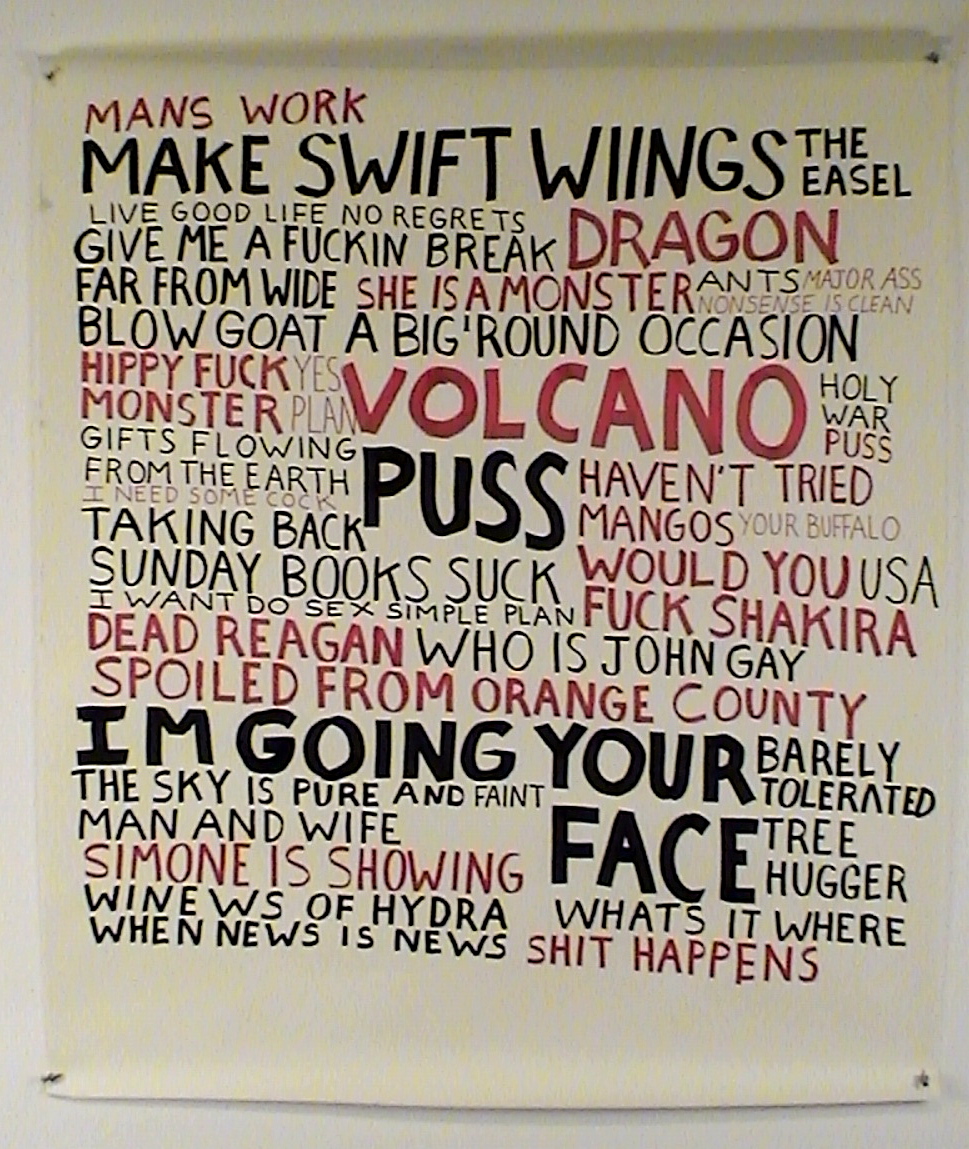 MANS WORK
MAKE SWIFT WIINGS THE
EASEL
LIVE GOOD LIFE NO REGRETS
GIVE ME A FUCKIN BREAK DRAGON
FAR FROM WIDE SHE IS A MONSTER ANTS MAJOR ASS
NONSENSE IS CLEAN
BLOW GOAT A BIG'ROUND OCCASION
HIPPY FUCK YES
MONSTER PLAN
VOLCANO
HOLY
WAR
PUSS
GIFTS FLOWING
FROM THE EARTH
I NEED SOME COCK
TAKING BACK
PUSS
HAVEN'T TRIED
MANGOS YOUR BUFFALO
SUNDAY BOOKS SUCK WOULD YOU USA
I WANT DO SEX SIMPLE PLAN FUCK SHAKIRA
DEAD REAGAN WHO IS JOHN GAY
SPOILED FROM ORANGE COUNTY
IM GOING YOUR BARELY
TOLERATED
THE SKY IS PURE AND FAINT
MAN AND WIFE
FACE
TREE
HUGGER
SIMONE IS SHOWING
WINE WS OF HYDRA WHATS IT WHERE
WHEN NEWS IS NEWS SHIT HAPPENS